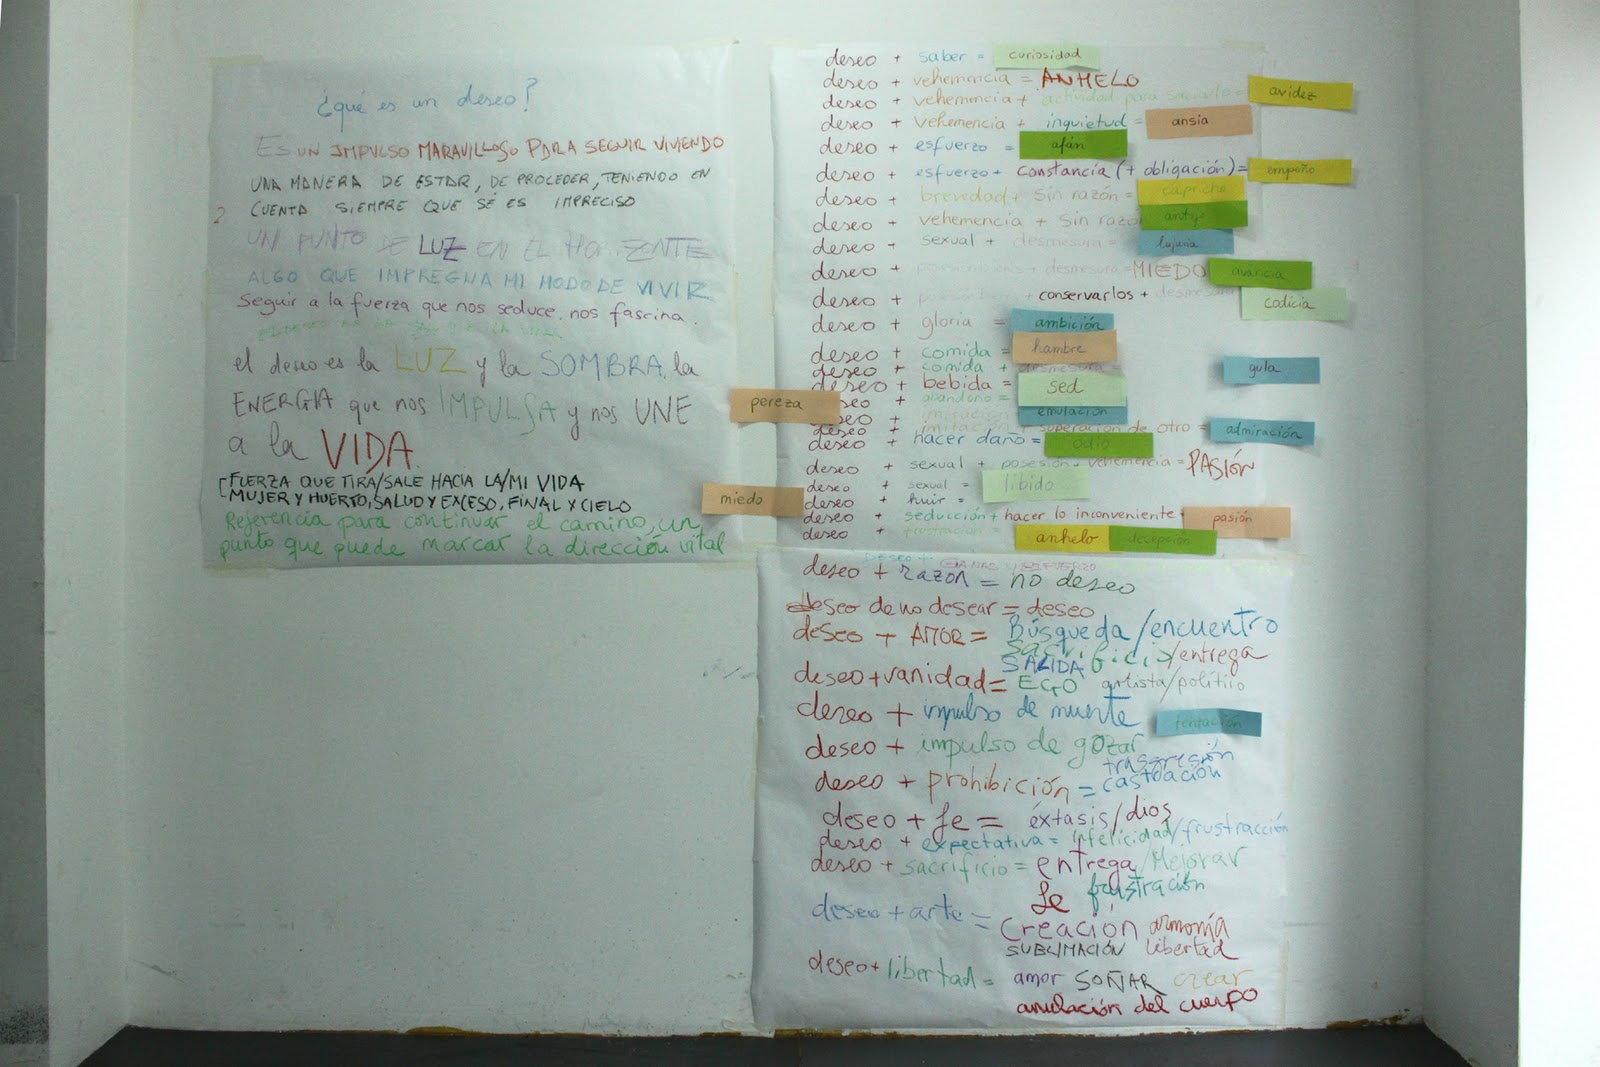 ¿qué es un deseo?
ES UN IMPULSO MARAVILLOSO PARA SEGUIR VIVIENDO
UNA MANERA DE ESTAR, DE PROCEDER, TENIENDO EN
CUENTA SIEMPRE QUE SÉ ES IMPRECISO
UN PUNTO DE LUZ EN EL HORIZONTE
ALGO QUE IMPREGNA MI MODO DE VIVIR
Seguir a la fuerza que nos seduce, nos fascina.
el deseo es la LUZ y la SOMBRA, la
ENERGIA que nos IMPULSA y nos UNE
a la VIDA.
FUERZA QUE TIRA/SALE HACIA LA/MI VIDA
MUJER Y HUERTO, SALUD Y EXCESO, FINAL Y CIELO
Referencia para continuar el camino, un
punto que puede marcar la dirección vital
deseo + saber = curiosidad
deseo + vehemencia = ANHELO
deseo + vehemencia + actividad para saciarlo = avidez
deseo + vehemencia + inquietud = ansia
deseo + esfuerzo = afán
deseo + esfuerzo + constancia (+ obligación) = empeño
deseo + brevedad + sin razón = capricho
deseo + vehemencia + sin razón antojo
deseo + sexual + desmesura = lujuria
deseo + + desmesura = MIEDO avaricia
deseo + + conservarlos + desmesura codicia
deseo + gloria = ambición
deseo + comida = hambre
deseo + comida + desmesura = gula
deseo + bebida = sed
pereza deseo + abandono =
deseo + imitación = emulación
deseo + imitación + superación de otro = admiración
deseo + hacer daño = odio
deseo + sexual + posesión + vehemencia = PASIÓN
deseo + sexual = libido
miedo deseo + huir =
deseo + seducción + hacer lo inconveniente = pasión
deseo + frustración = anhelo decepción
DESEO + GANAS Y ESFUERZO
deseo + razón = no deseo
deseo de no desear = deseo
deseo + AMOR = Búsqueda/encuentro
sacrificio/entrega
SALIDA
deseo + vanidad = EGO artista/político
deseo + impulso de muerte tentación
deseo + impulso de gozar
trasgresión
deseo + prohibición = castración
deseo + fe = éxtasis/dios
deseo + expectativa = infelicidad/frustracción
deseo + sacrificio = entrega/Mejorar
fe frustración
deseo + arte = creación armonía
SUBLIMACIÓN libertad
deseo + libertad = amor SOÑAR crear
anulación del cuerpo